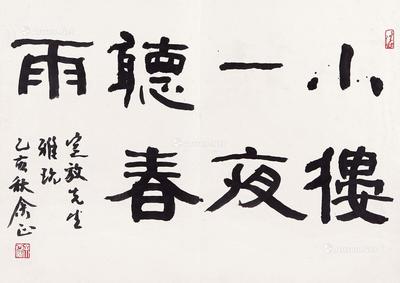 小樓
一夜
聽春
雨
放先生
雅玩
乙亥秋余正